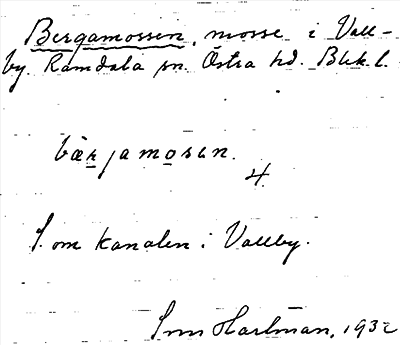 Bergamossen, mosse i Vall-
by. Ramdala sn. Östra hd. Blek. l.
bärjamosen.
4.
S. om kanalen i Vallby.
Hartman, 1932